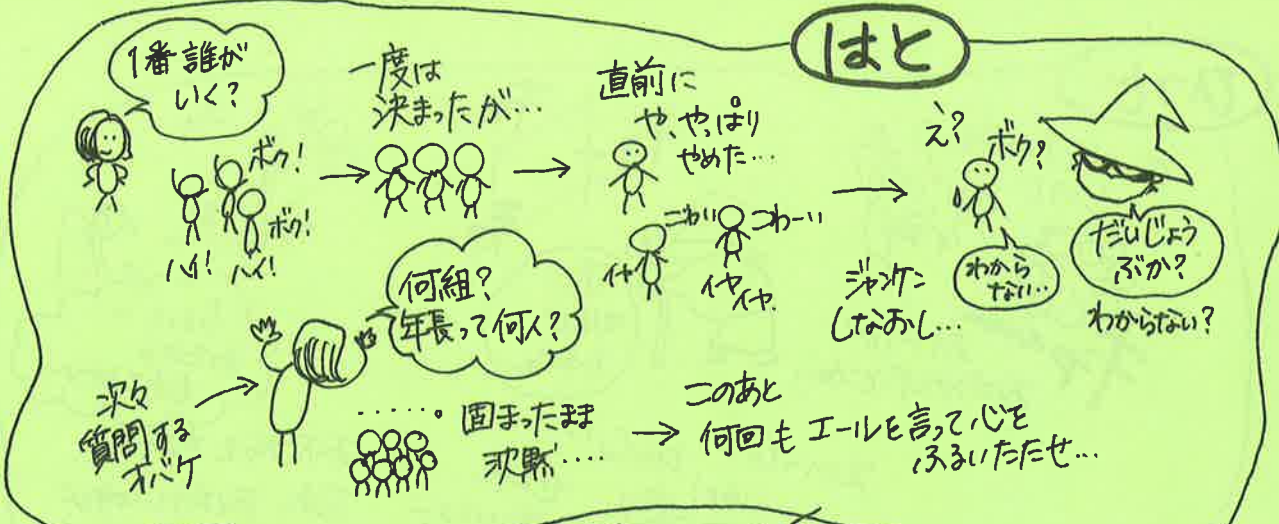 はと
1番誰が
いく?
ボク!
ボク!
ハイ!
ハイ!
一度は
決まったが…
直前に
や、やっぱり
やめた…
こわい
こわーい
イヤ
イヤ
イヤ
ジャンケン
しなおし…
え?
ボク?
わから
ない…
だいじょう
ぶか?
わからない?
次々
質問する
オバケ
何組?
年長って何人?
……。
固まったまま
沈黙….
このあと
何回もエールを言って心を
ふるいたたせ…